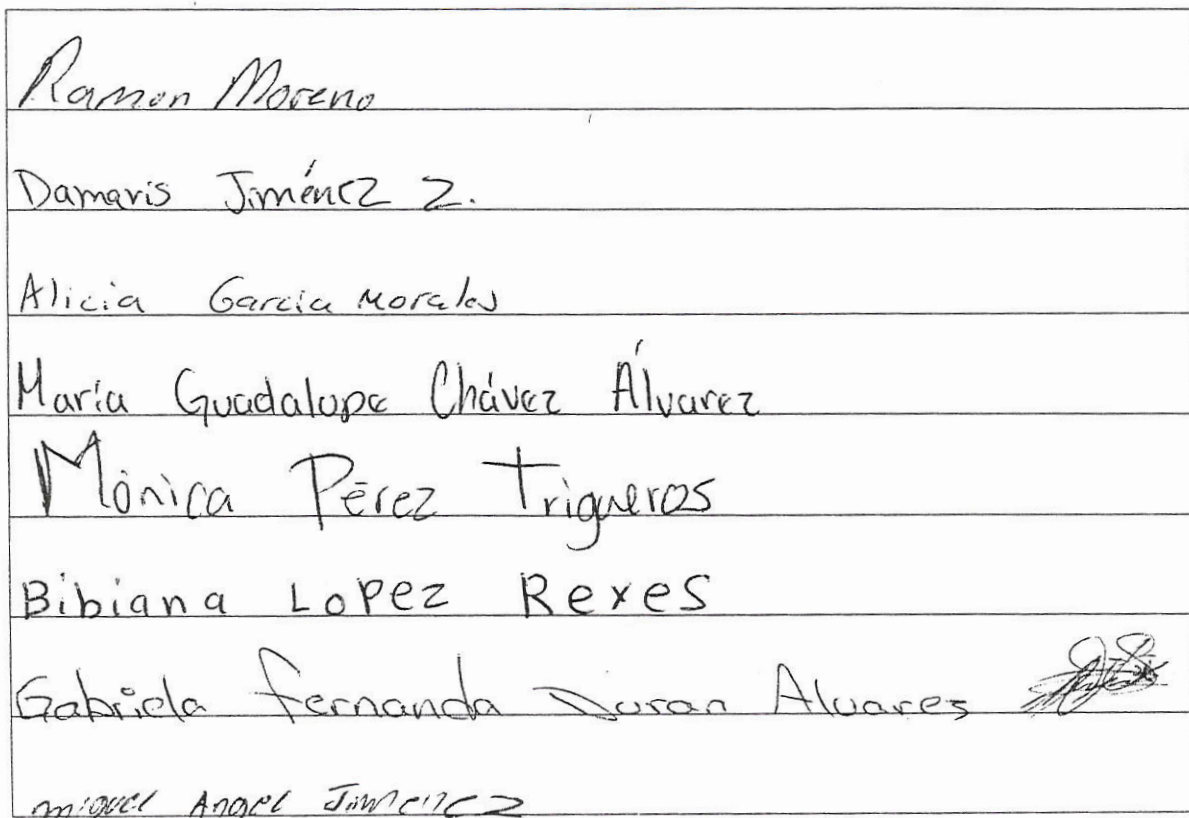 Ramon Moreno
Damaris Jiménez Z.
Alicia Garcia Morales
María Guadalupe Chávez Álvarez
Mónica Pérez Trigueros
Bibiana Lopez Reyes
Gabriela Fernanda Duran Alvares
miguel Angel Jimenez